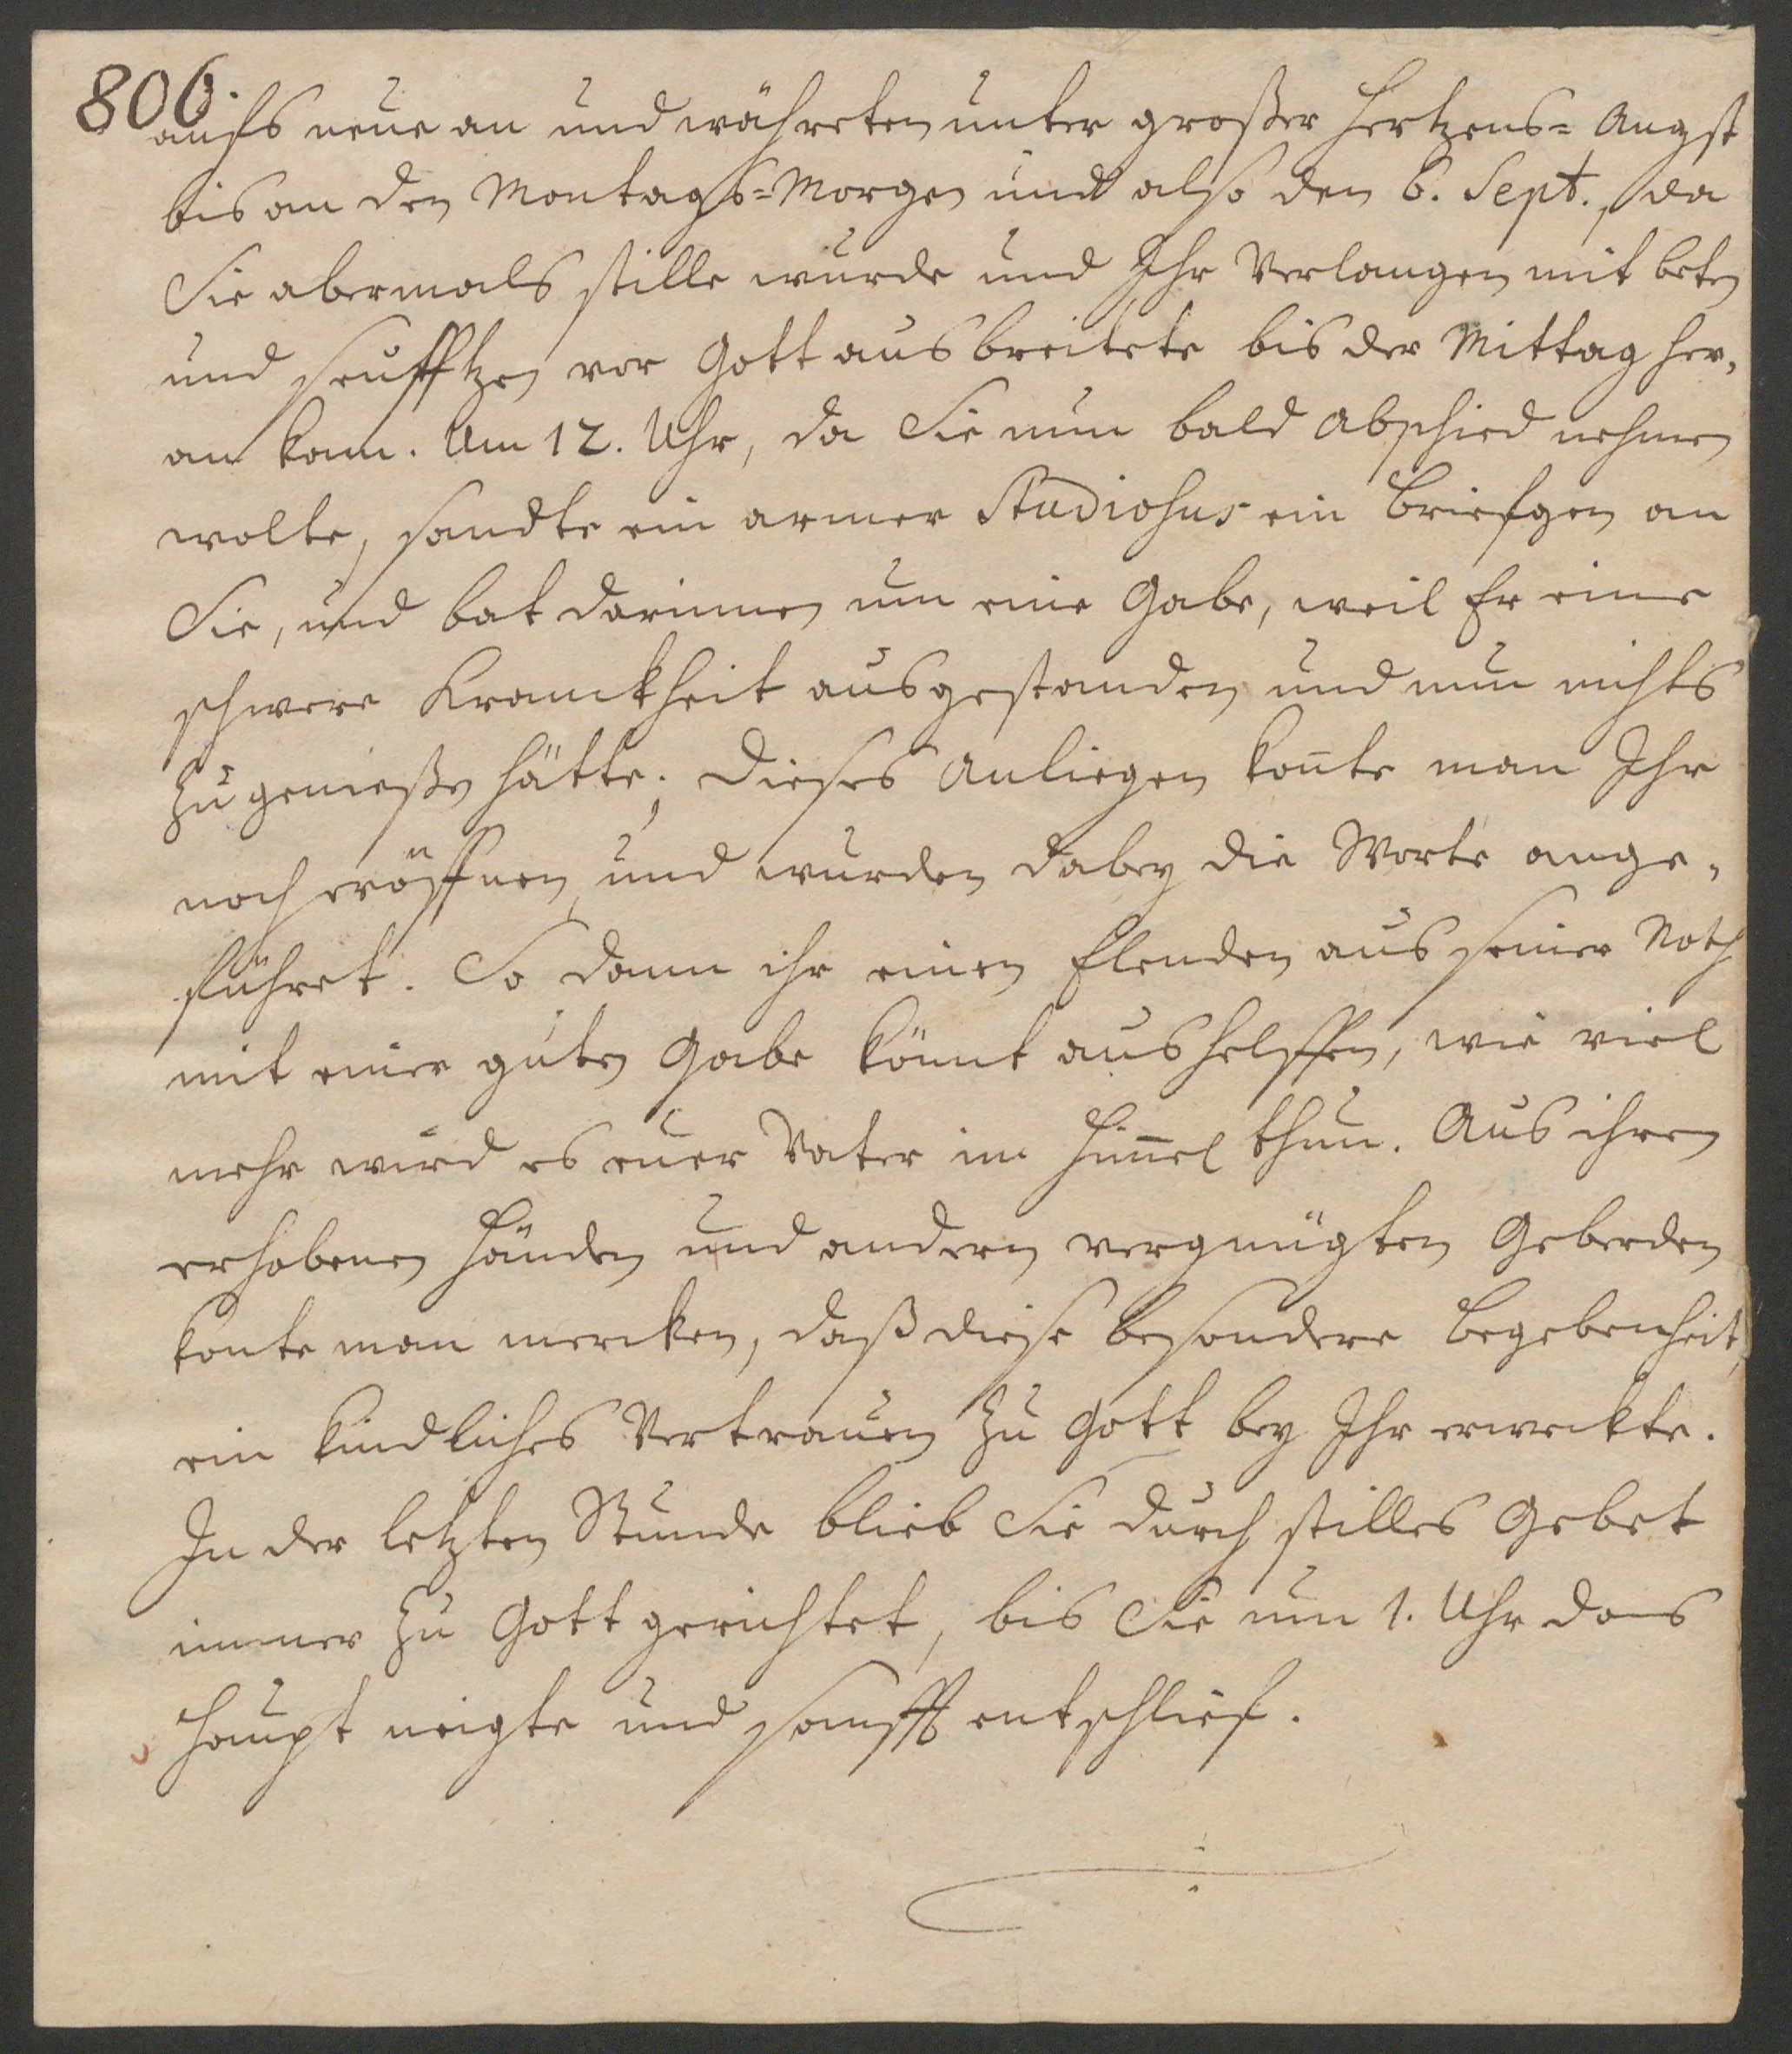 806.
aufs neue an und währeten unter großer Hertzens=Angst
bis an den Montags=Morgen und also den 6. Sept., da
Sie abermals stille wurde und Ihr Verlangen mit beten
und seufftzen vor Gott ausbreitete bis der Mittag her,
an kam. Um 12. Uhr, da Sie nun bald Abschied nehmen
wolte, sandte ein armer Studiosus ein Briefgen an
Sie, und bat darinnen um eine Gabe, weil Er eine
schwere Kranckheit ausgestanden und nun nichts
zu genießen hätte; dieses Anliegen kon̄te man Ihr
noch eröffnen, und wurden dabey die Worte ange,
führet. So dann ihr einen Elenden aus seiner Noth
mit einer guten Gabe könnt aushelffen, wie viel
mehr wird es euer Vater im Him̄el thun. Aus ihren
erhobenen Händen und andern vergnügten Geberden
konte man mercken, daß diese besondere Begebenheit,
ein kindliches Vertrauen zu Gott bey Ihr erweckte.
In der letzten Stunde blieb Sie durch stilles Gebet
immer zu Gott gerichtet, bis Sie um 1. Uhr das
Haupt neigte und sanfft entschlief.